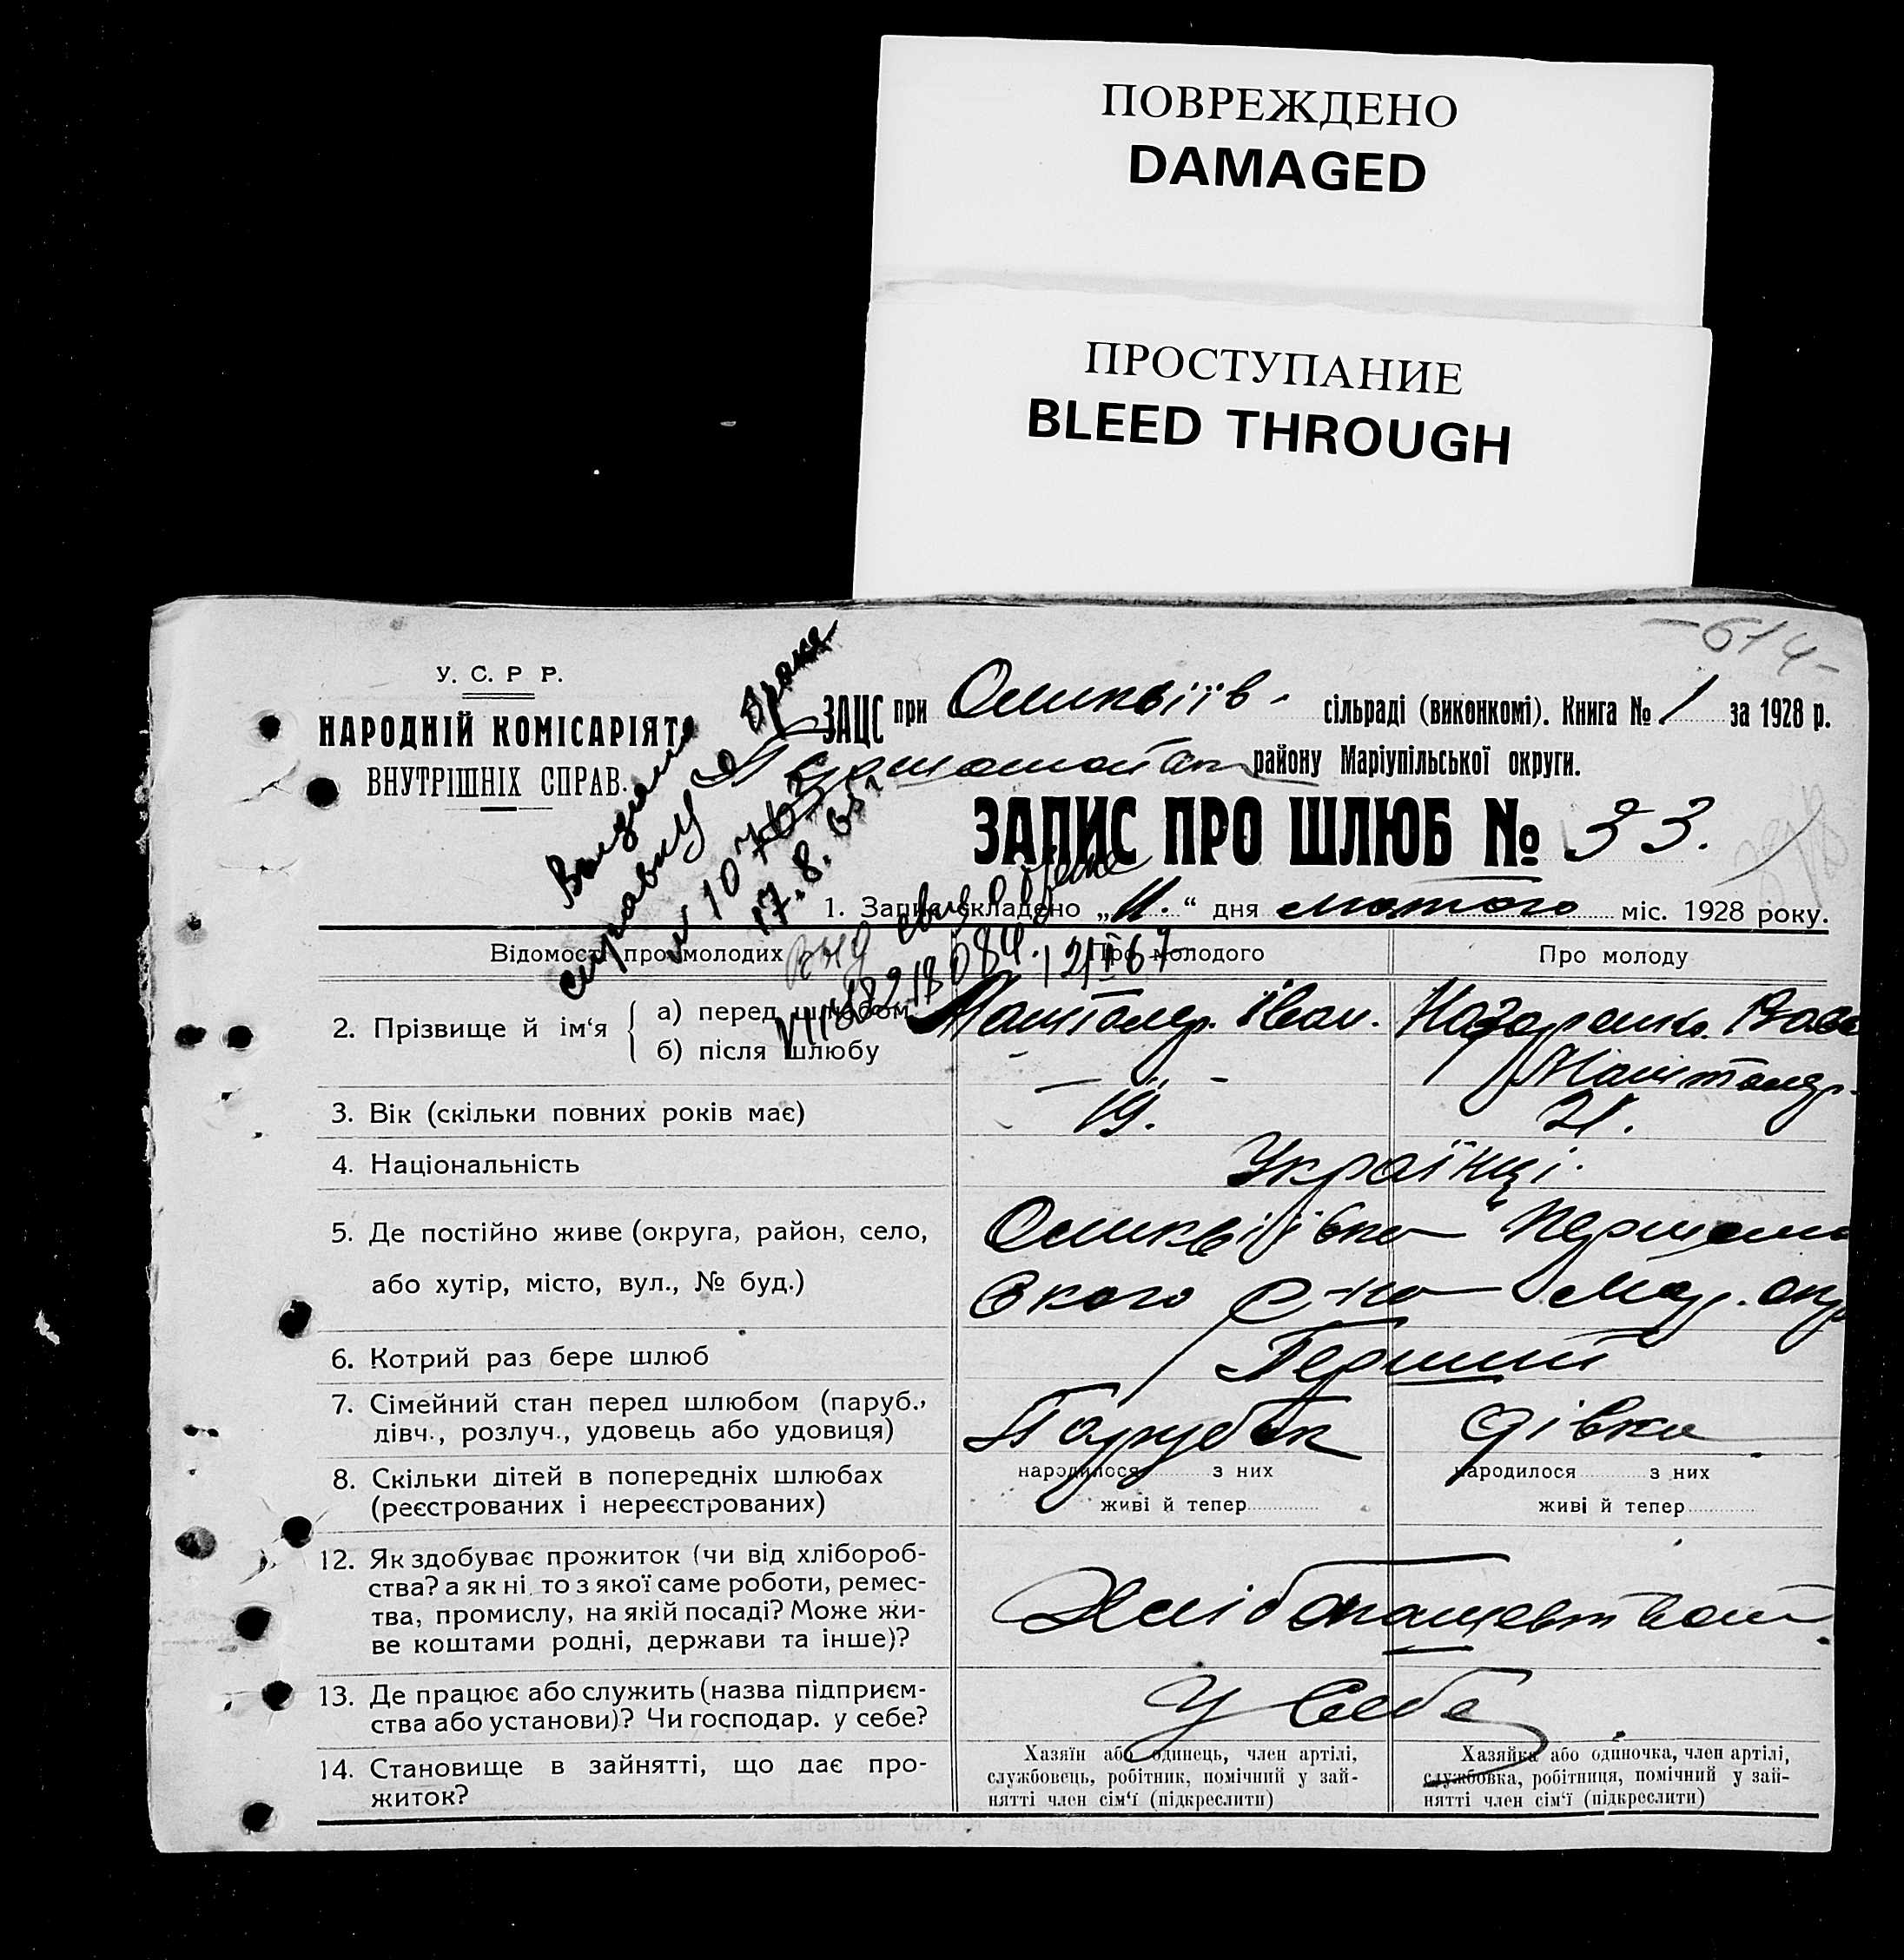 ПОВРЕЖДЕНО
DAMAGED
ПРОСТУПАНИЕ
BLEED THROUGH
-614-
У. С. Р Р.
НАРОДНІЙ КОМІСАРІЯТ
ВНУТРІШНІХ СПРАВ.
ЗАЦС при сільраді (виконкомі). Книга № 1 за 1928 р.
району Маріупільської округи.
ЗАПИС ПРО ШЛЮБ № 33.
справку о браке
17.8.65 г
1. Запис складено „11.“ дня лютого міс. 1928 року.
Відомості про молодих
Про молодого
Про молоду
2. Прізвище й ім‘я
а) перед шлюбом
Іван.
б) після шлюбу
3. Вік (скільки повних років має)
19.
21.
4. Національність
Українці.
5. Де постійно живе (округа, район, село,
або хутір, місто, вул., № буд.)
6. Котрий раз бере шлюб
Перший
7. Сімейний стан перед шлюбом (паруб.,
дівч., розлуч., удовець або удовиця)
Парубок
дівка
8. Скільки дітей в попередніх шлюбах
(реєстрованих і нереєстрованих)
народилося з них
живі й тепер
народилося з них
живі й тепер
12. Як здобуває прожиток (чи від хлібороб-
ства? а як ні, то з якої саме роботи, ремес-
тва, промислу, на якій посаді? Може жи-
ве коштами родні, держави та інше)?
13. Де працює або служить (назва підприєм-
ства або установи)? Чи господар. у себе?
У себе
14. Становище в зайнятті, що дає про-
житок?
Хазяїн або одинець, член артілі,
службовець, робітник, помічний у зай-
нятті член сім‘ї (підкреслити)
Хазяйка або одиночка, член артілі,
службовка, робітниця, помічний у зай-
нятті член сім‘ї (підкреслити)